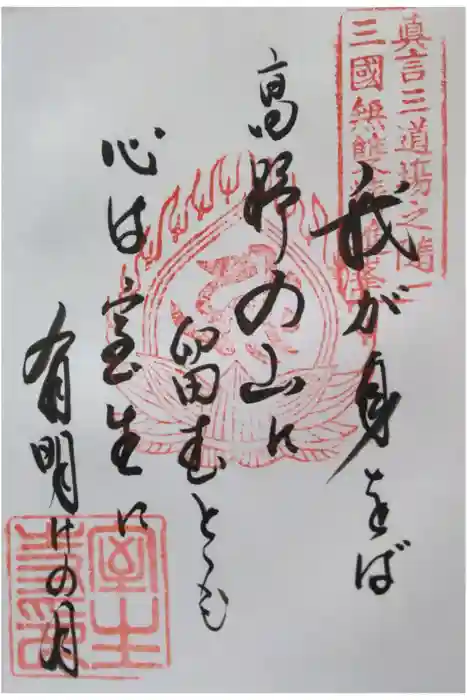 真言三道場之随一
三國無雙
我が身をば
高野の山に
留むとも
心は室生に
有明けの月
室生